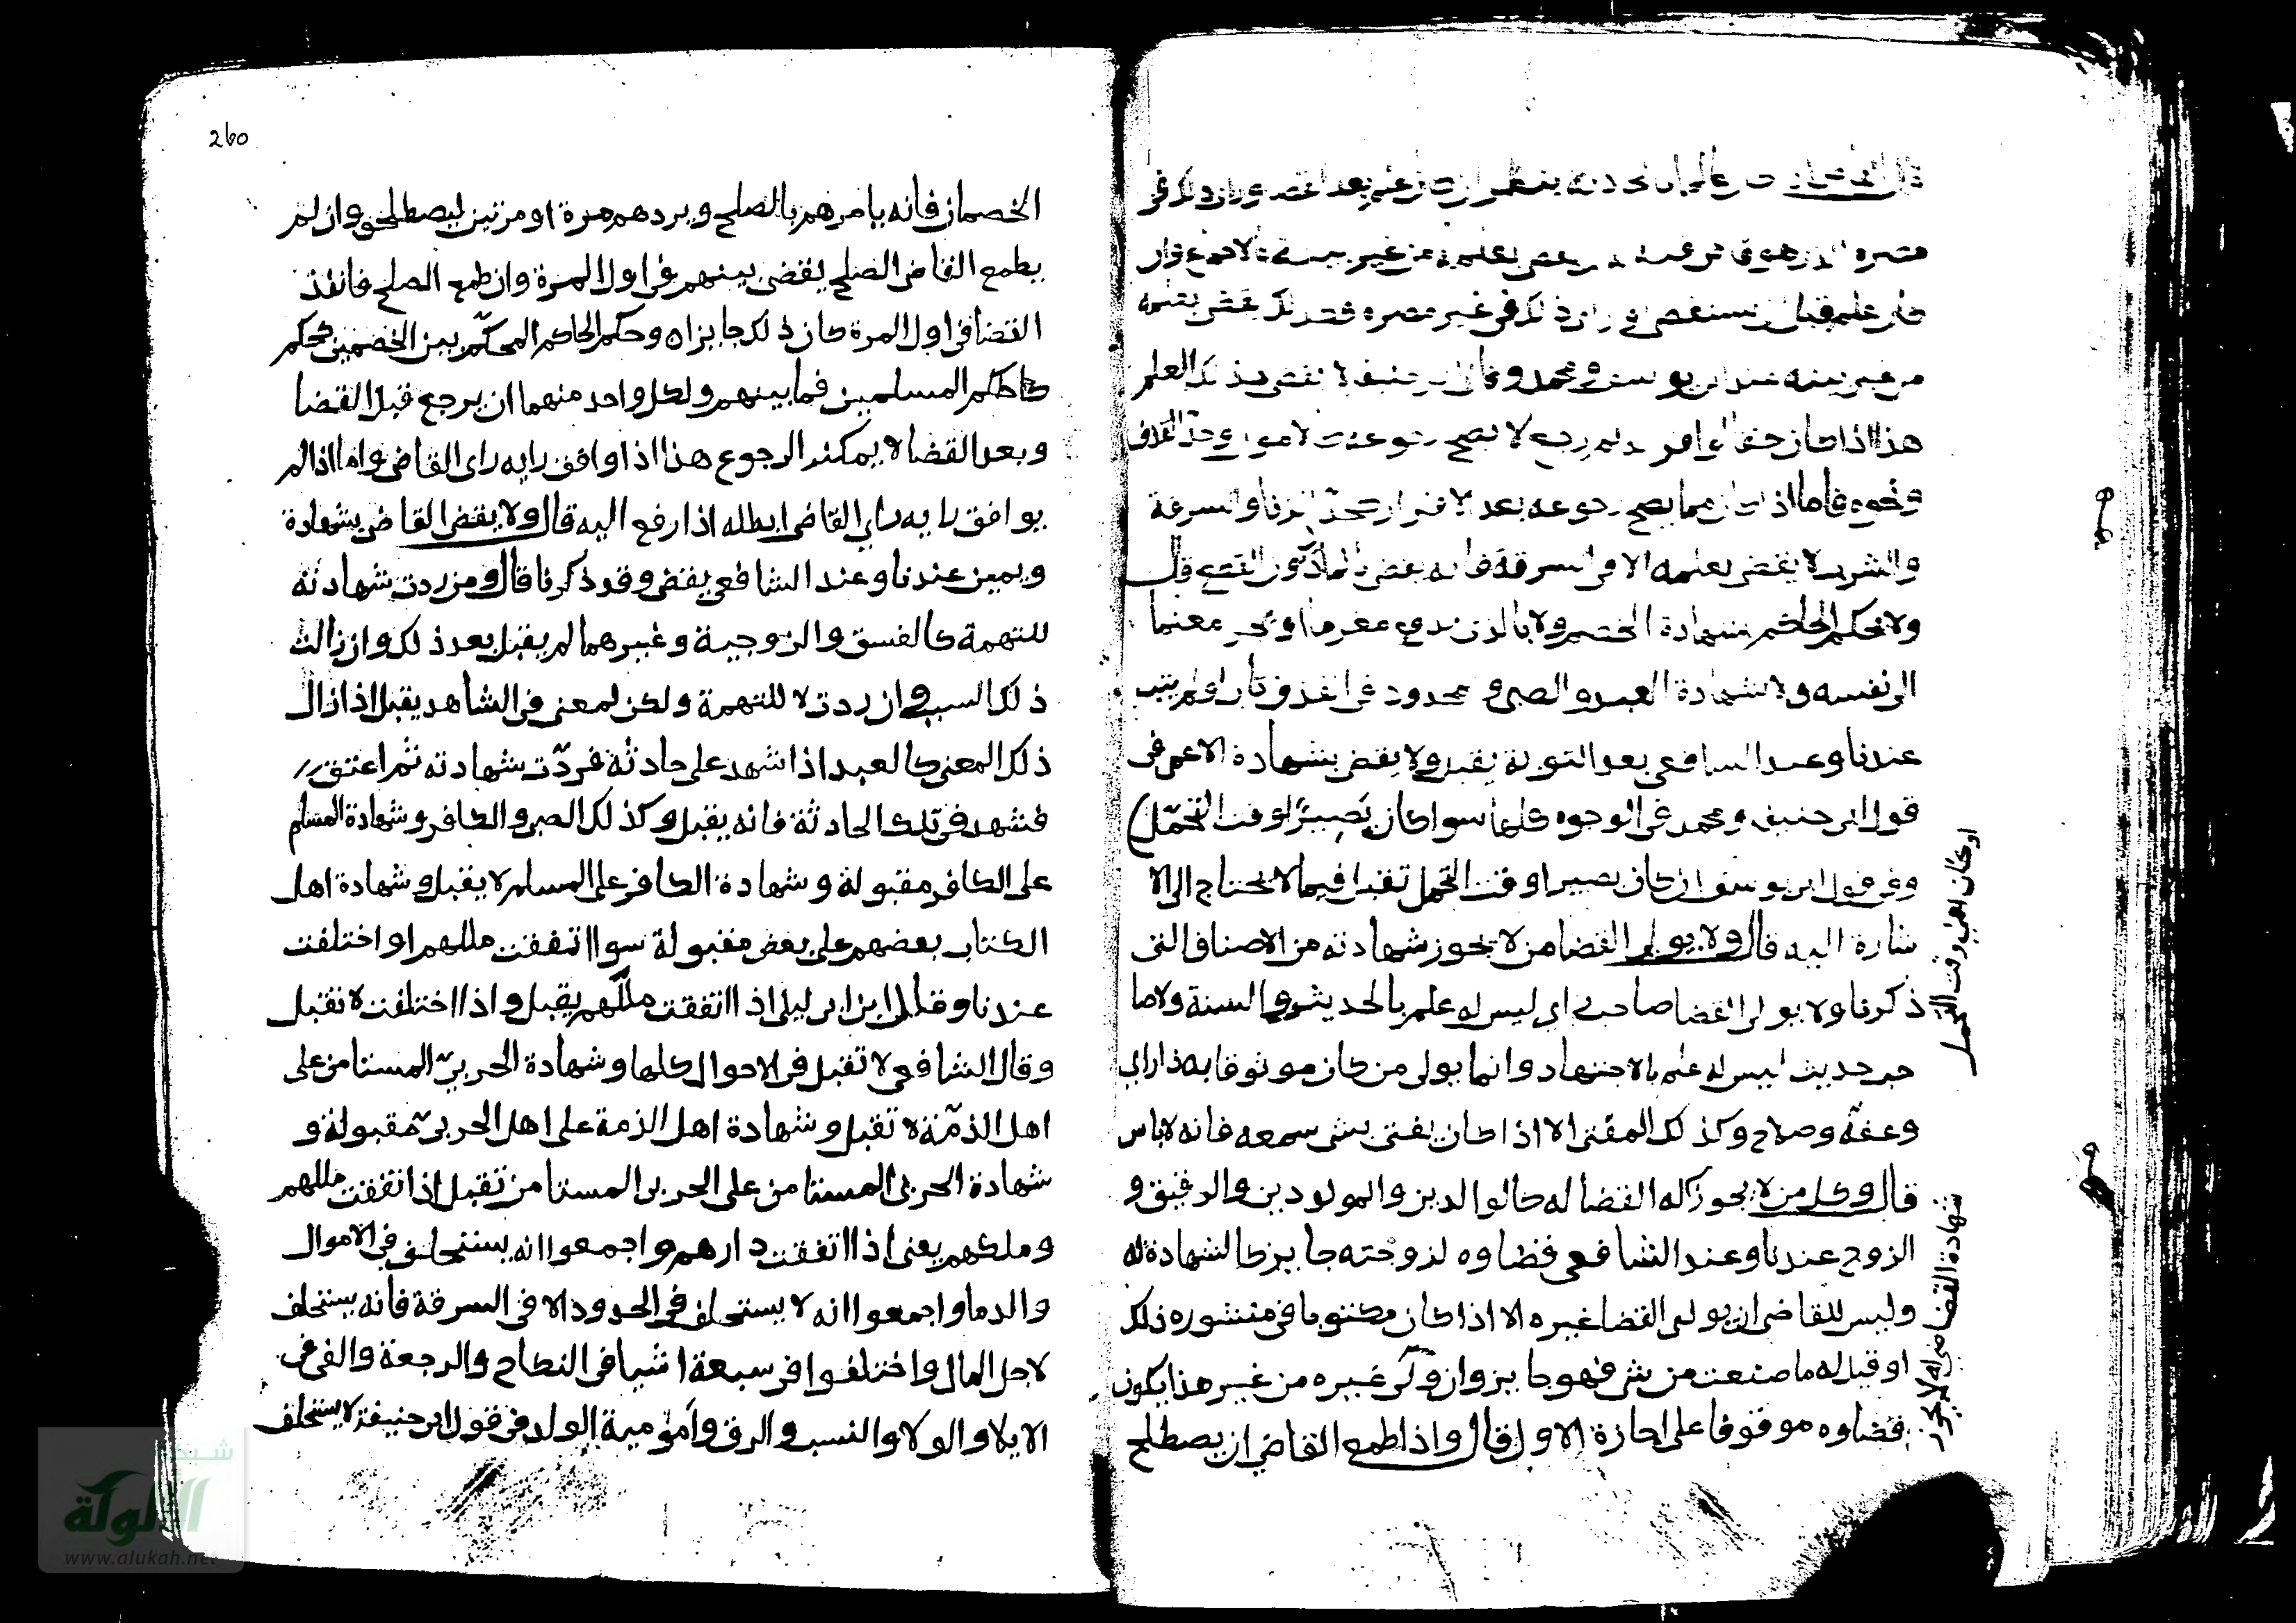 هذا اذا كان حقا
ونحوه فاما اذا كان مما يصح رجوعه بعد الاقرار كحد الزنا والسرقة
والشرب لا يقضى بعلمه الا فى السرقة فانه يقضى بالمال دون القطع قال
ولا يحكم الحاكم بشهادة الخصم ولا بالذى يدفع مغرما او يجر مغنما
الى نفسه ولا شهادة العبد والصبى و محدود فى القذف تاب او لم يتب
عندنا وعند الشافعى بعد التوبة يقبل ولا يقضى بشهادة الاعمى فى
قول ابى حنيفة ومحمد فى الوجوه كلها سوا كان بصيرًا وقت التحمّل
وفى قول ابى يوسف ان كان بصيرا وقت التحمل تقبل فيما لا يحتاج الى الا
شارة اليه قال ولا يولى القضا من لا تجوز شهادته من الاصناف التى
ذكرنا ولا يولى القضا صاحب راى ليس له علم بالحديث والسنة ولا صا
حب حديث ليس له علم بالاجتهاد وانما يولى من كان موثوقا به ذا راى
وعفّة وصلاح وكذلك المفتى الا اذا كان يفتى بشى سمعه فانه لا باس
قال وكل من لا يجوز له القضا له كالوالدين والمولودين والرقيق و
الزوج عندنا وعند الشافعى قضاوه لزوجته جايز كالشهادة له
وليس للقاضى ان يولى القضا غيره الا اذا كان مكتوبا فى منشوره ذلك
او قيل له ما صنعت من شى فهو جايز وان ولّى غيره من غير هذا يكون
قضاوه موقوفا على اجازة الاول قال واذا طمع القاضى ان يصطلح
او كان اعمى وقت التحمل
260
الخصمان فانه يامرهم بالصلح ويردهم مرة او مرتين ليصطلحو وان لم
يطمع القاضى الصلح يقضى بينهم فى اول المرة وان طمع الصلح فانفذ
القضا فى اول المرة كان ذلك جايزاه وحكم الحاكم المحكّم بين الخصمين كحكم
حاكم المسلمين فما بينهم ولكل واحد منهما ان يرجع قبل القضا
وبعد القضا لا يمكنه الرجوع هذا اذا وافق رايه راى القاضى واما اذا لم
يوافق رايه راى القاضى ابطله اذا رفع اليه قال ولا يقضى القاضى بشهادة
ويمين عندنا وعند الشافعى يقضى وقد ذكرنا قال ومن ردت شهادته
للتهمة كالفسق والزوجية وغيرهما لم يقبل بعد ذلك وان زالت
ذلك السبب وان ردت لا للتهمة ولكن لمعنى فى الشاهد يقبل اذا زال
ذلك المعنى كالعبد اذا شهد على حادثة فردّت شهادته ثم اعتق
فشهد فى تلك الحادثة فانه يقبل وكذلك الصبى والكافر وشهادة المسلم
على الكافر مقبولة وشهادة الكافر على المسلم لا يقبل وشهادة اهل
الكتاب بعضهم على بعض مقبولة سوا اتفقت مللهم او اختلفت
عندنا وقال ابن ابى ليلى اذا اتفقت مللهم يقبل واذا اختلفت لا تقبل
وقال الشافعى لا تقبل فى الاحوال كلها وشهادة الحربىّ المستامن على
اهل الذمّة لا تقبل وشهادة اهل الذمة على اهل الحربىّ مقبولة و
شهادة الحربى المستامن على الحربى المستامن تقبل اذا اتفقت مللهم
وملكهم يعنى اذا اتفقت دارهم واجمعوا انه يستحلف فى الاموال
والدما واجمعوا انه لا يستحلف فى الحدود الا فى السرقة فانه يستحلف
لاجل المال واختلفوا فى سبعة اشيا فى النكاح والرجعة والفى فى
الايلا والولا والنسب والرق وامومية الولد فى قول ابى حنيفة لا يستحلف
شبكة
الألوكة
www.alukah.net